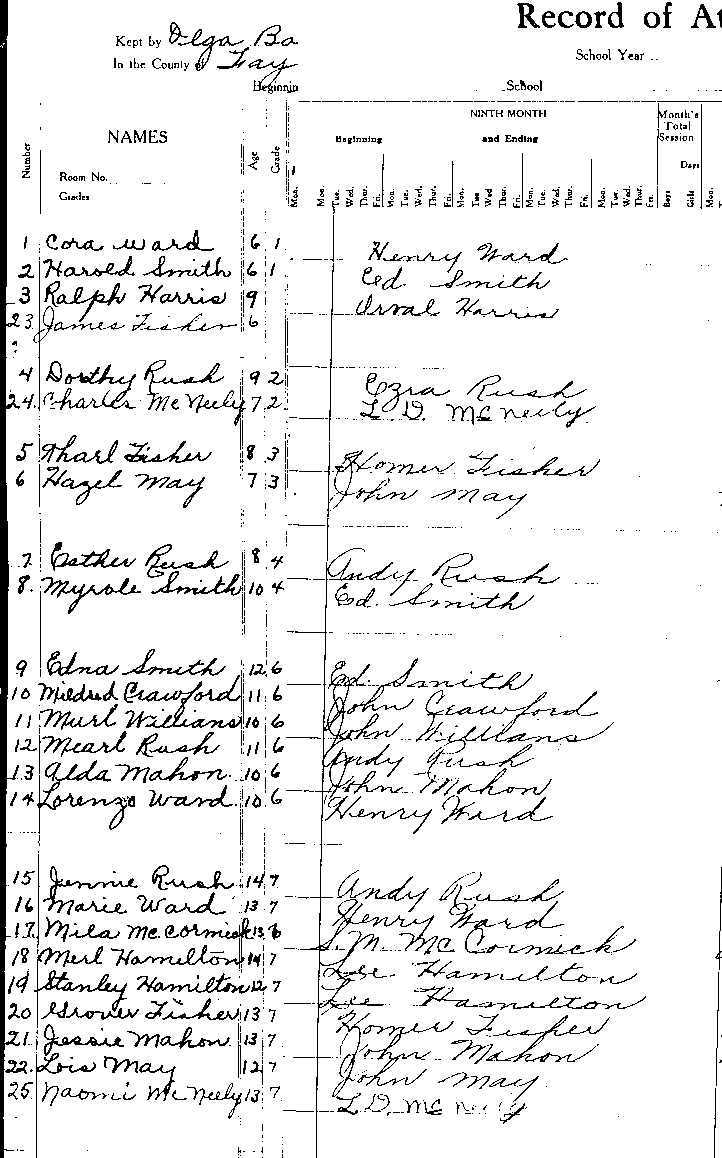 Record of At
Kept by Olga Ba
School Year ..
In the County of Fay
Beginnin School
NINTH MONTH Month's Total Session
NAMES
Beginning and Ending
Number Age Grade
Room No. Days
Grades
Mon. Mon. Tue. Wed. Thur. Fri. Mon. Tue. Wed. Thur. Fri. Mon. Tue Wed Thur. Fri. Mon. Tue. Wed. Thur. Fri. Mon. Tue. Wed. Thur. Fri. Boys Girls Mon.
1 Cora Ward 6 1 Henry Ward
2 Harold Smith 6 1 Ed Smith
3 Ralph Harris 9 Orval Harris
23 James Fisher 6
4 Dorthy Rush 9 2 Ezra Rush
24. Charles McNeely 7 2 L. D. McNeily
5 Tharl Fisher 8 3 Homer Fisher
6 Hazel May 7 3 John May
7 Esther Rush 8 4 Andy Rush
8. Myrole Smith 10 4 Ed. Smith
9 Edna Smith 12 6 Ed Smith
10 Mildred Crawford 11 6 John Crawford
11 Murl Williams 10 6 John Williams
12 Mearl Rush 11 6 Andy Rush
13 Alda Mahon 10 6 John Mahon
14 Lorenzo Ward 10 6 Henry Ward
15 Jennie Rush 14 7 Andy Rush
16 Marie Ward 13 7 Henry Ward
17. Mila McCormick 13 6 S. M. McCormick
18 Merl Hamilton 14 7 Lee Hamilton
19 Stanley Hamilton 12 7 Lee Hamilton
20 Grover Fisher 13 7 Homer Fisher
21. Jessie Mahon 13 7 John Mahon
22. Lois May 12 7 John May
25. Naomi McNeely 13 7 L. D. McNeely